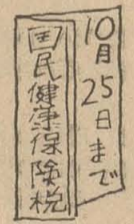 10月25日まで
国民健康保険税